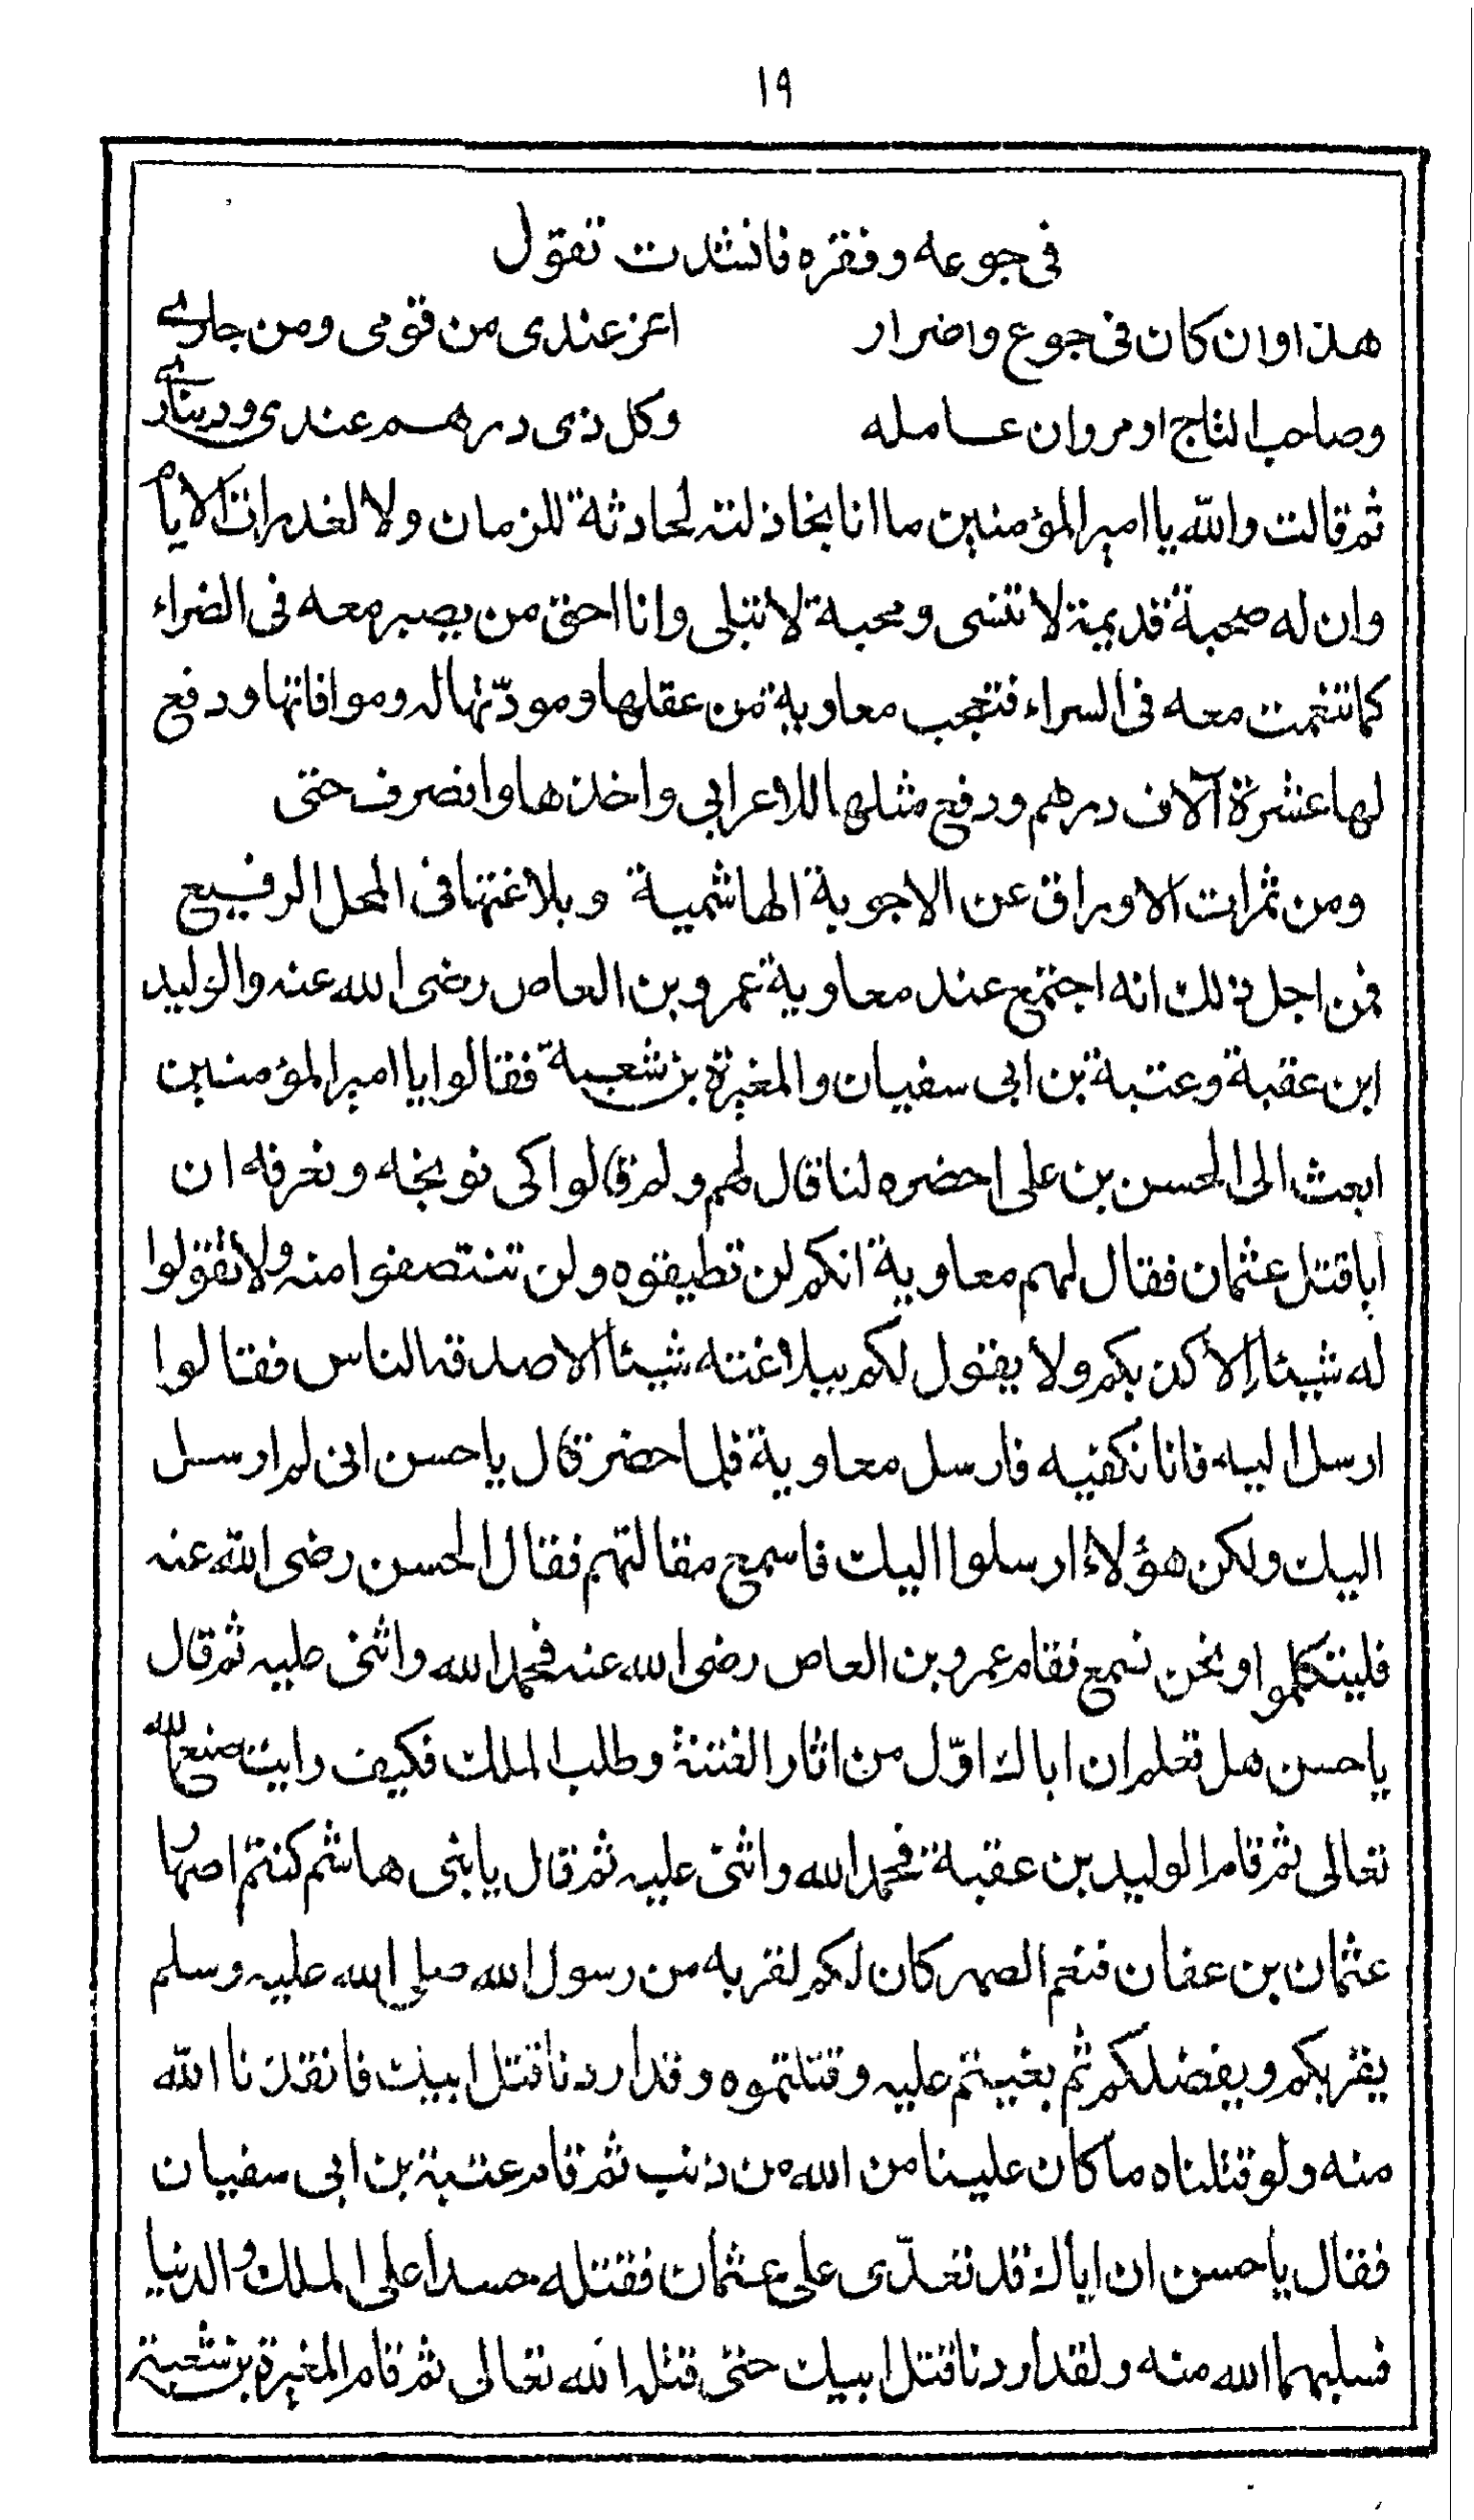 ١٩
فى جوعه وفقره فانشدت تقول
هذا وان كان فى جوع واضرار اعز عندى من قومى ومن جارى
وصاحب التاج او مروان عامله وكل ذى درهم عندى ودينارى
ثم قالت والله يا امير المؤمنين ما انا بخاذلته لحادثة للزمان ولا لغدرات الايام
وان له صحبة قديمة لا تنسى ومحبة لا تبلى وانا احق من يصبر معه فى الضراء
كما تنعمت معه فى السراء فتعجب معاوية من عقلها ومودّتها له وموافاتها ودفع
لها عشرة آلاف درهم ودفع مثلها للاعرابى واخذها وانصرف حتى
ومن ثمرات الاوراق عن الاجوبة الهاشمية وبلاغتها فى المحل الرفيع
فمن اجل ذلك انه اجتمع عند معاوية عمرو بن العاص رضى الله عنه والوليد
ابن عقبة وعتبة بن ابى سفيان والمغيرة بن شعبة فقالوا يا امير المؤمنين
ابعث الى الحسن بن على احضره لنا قال لهم ولم قالوا كى نوبخه ونعرفه ان
اباه قتل عثمان فقال لهم معاوية انكم لن تطيقوه ولن تنتصفوا منه ولا تقولوا
له شيئا الا كذبكم ولا يقول لكم ببلاغته شيئا الا صدقه الناس فقالوا
ارسل اليه فانا نكفيه فارسل معاوية فلما حضر قال يا حسن انى لم ارسل
اليك ولكن هؤلاء ارسلوا اليك فاسمع مقالتهم فقال الحسن رضى الله عنه
فليتكلموا ونحن نسمع فقام عمرو بن العاص رضى الله عنه فحمد الله واثنى عليه ثم قال
يا حسن هل تعلم ان اباك اوّل من اثار الفتنة وطلب الملك فكيف رايت صنع الله
تعالى ثم قام الوليد بن عقبة فحمد الله واثنى عليه ثم قال يا بنى هاشم كنتم اصهار
عثمان بن عفان فنعم الصهر كان لكم لقربه من رسول الله صلى الله عليه وسلم
يقربكم ويفضلكم ثم بغيتم عليه وقتلتموه وقد اردنا قتل ابيك فانقذنا الله
منه ولو قتلناه ما كان علينا من الله من ذنب ثم قام عتبة بن ابى سفيان
فقال يا حسن ان اباك قد تعدّى على عثمان فقتله حسدا على الملك والدنيا
فسلبهما الله منه ولقد اردنا قتل ابيك حتى قتله الله تعالى ثم قام المغيرة بن شعبة